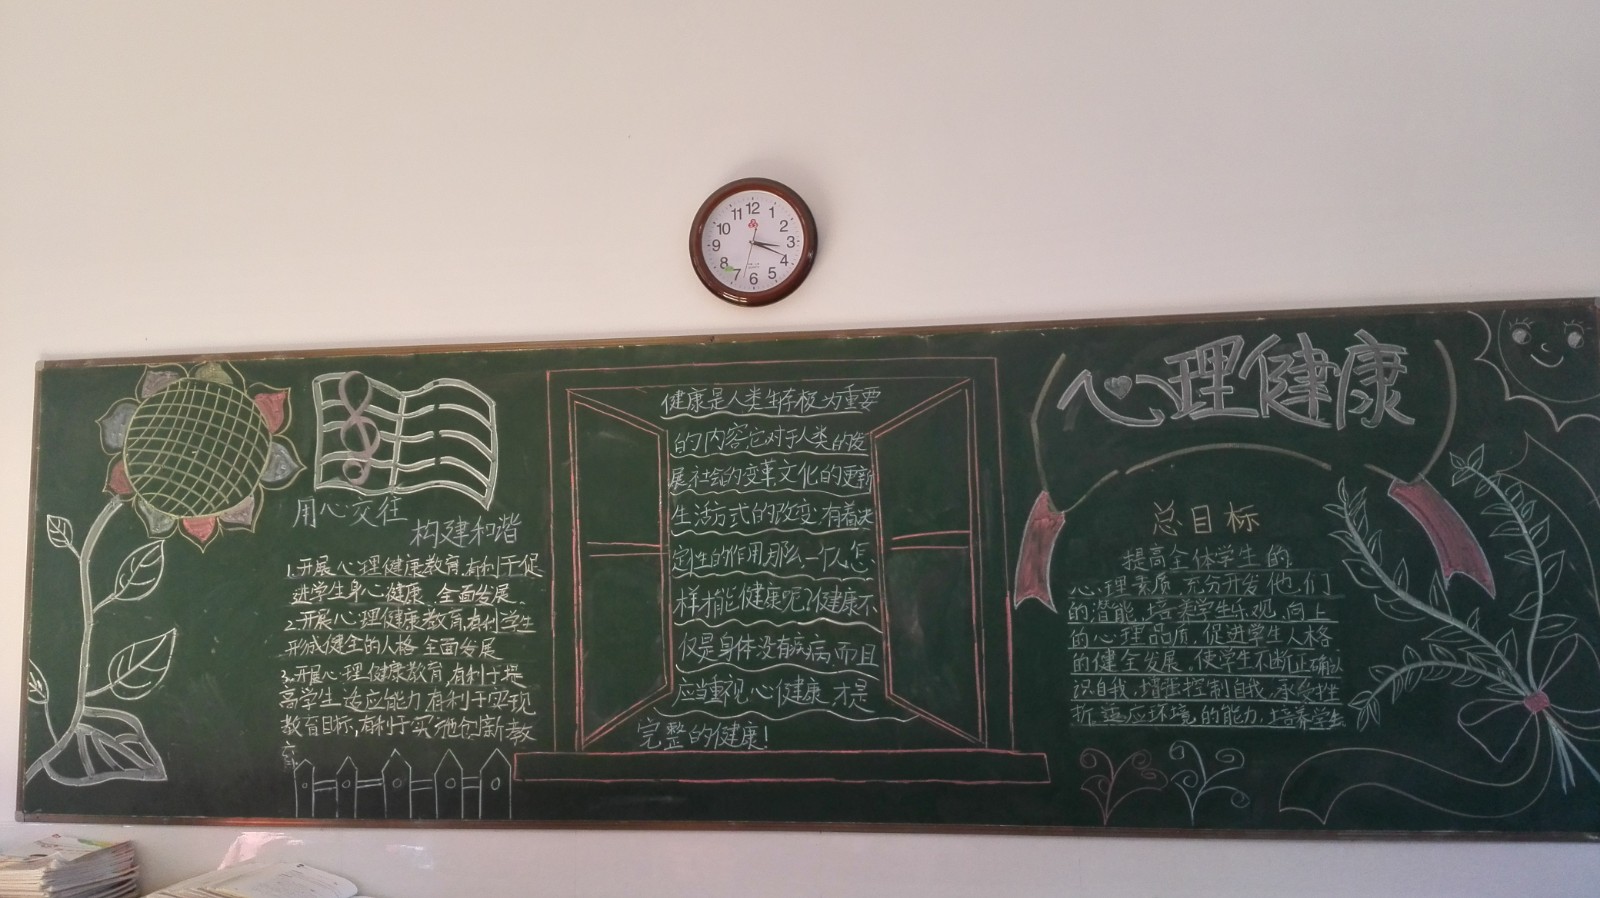 12
1
2
3
4
5
6
7
8
9
10
11
用心交往
构建和谐
1.开展心理健康教育,有利于促
进学生身心健康、全面发展
2.开展心理健康教育,有利学生
形成健全的人格 全面发展
3.开展心理健康教育,有利于提
高学生适应能力,有利于实现
教育目标,有利于实施创新教
育
健康是人类生存极为重要
的内容它对于人类的发
展,社会的变革,文化的更新
生活方式的改变,有着决
定性的作用,那么一个人怎
样才能健康呢?健康不
仅是身体没有疾病,而且
应当重视心健康,才是
完整的健康!
心理健康
总目标
提高全体学生的
心理素质,充分开发他们
的潜能,培养学生乐观、向上
的心理品质,促进学生人格
的健全发展,使学生不断正确认
识自我,增强控制自我、承受挫
折、适应环境的能力,培养学生